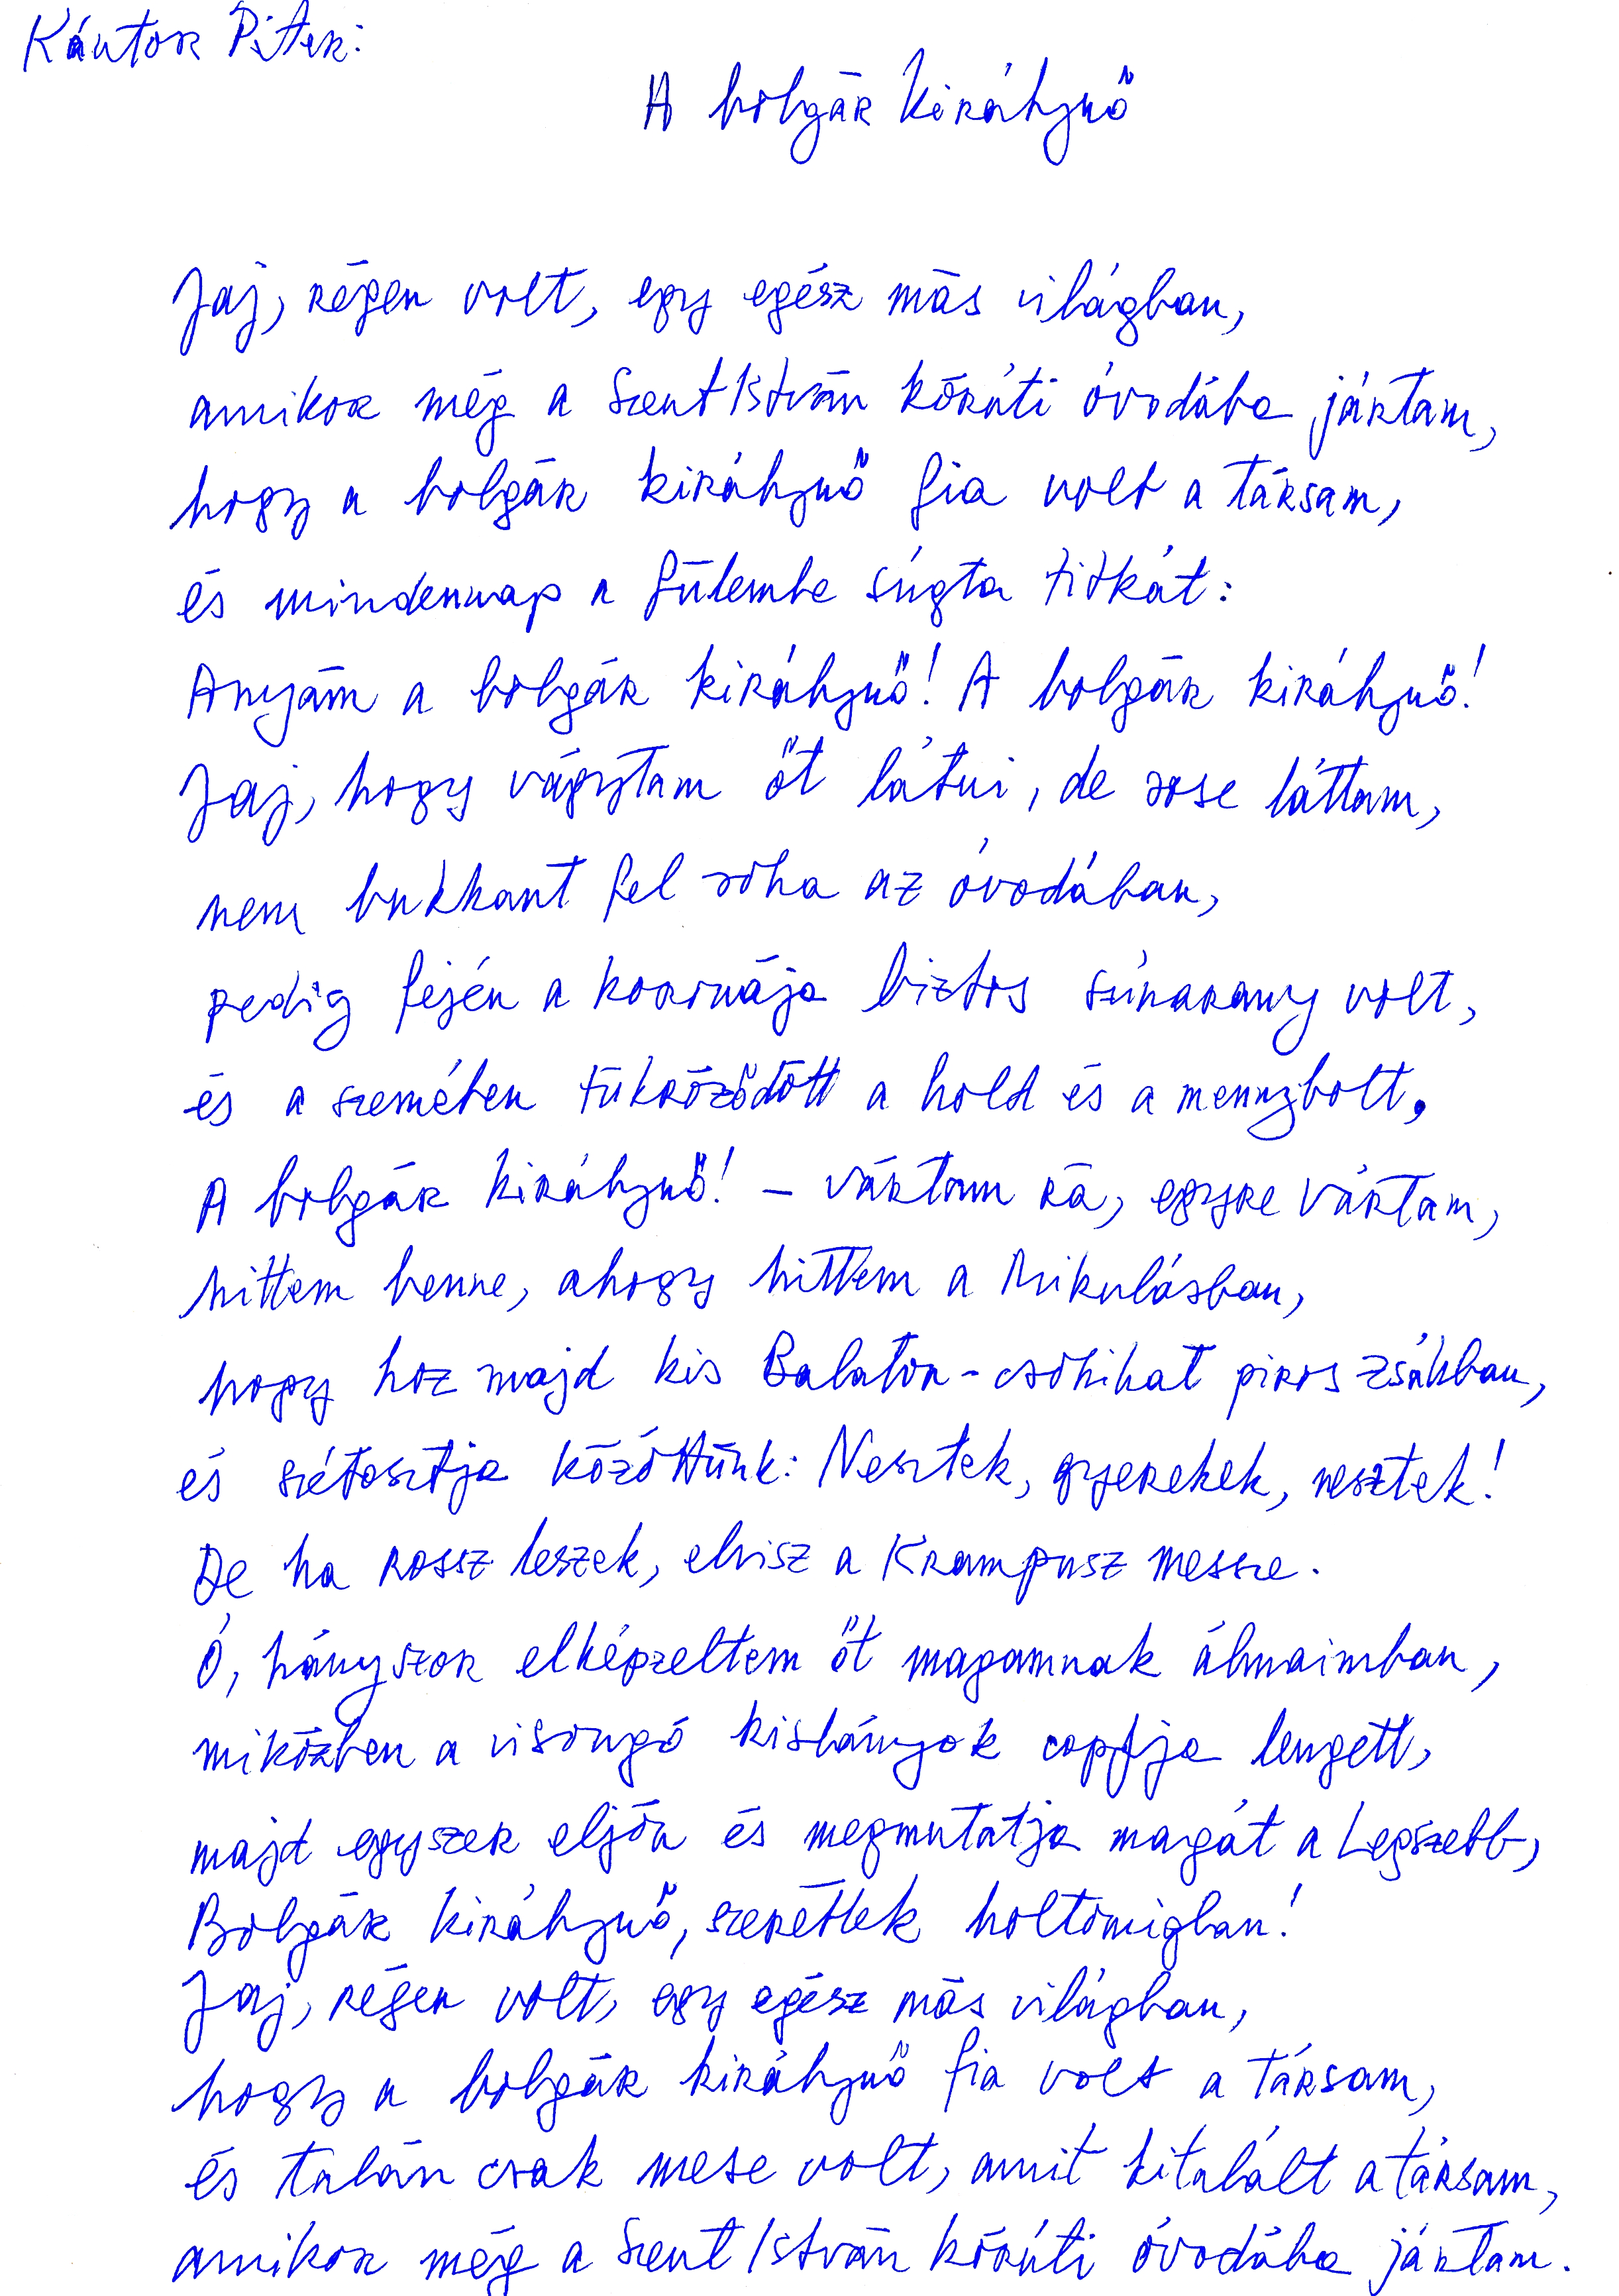 Kántor Péter:
A bolgár királynő
Jaj, régen volt, egy egész más világban,
amikor még a Szent István körúti óvodába jártam,
hogy a bolgár királynő fia volt a társam,
és mindennap a fülembe súgta titkát:
Anyám a bolgár királynő! A bolgár királynő!
Jaj, hogy vágytam őt látni, de sose láttam,
nem bukkant fel soha az óvodában,
pedig fején a koronája biztos színarany volt,
és a szemében tükröződött a hold és a mennybolt.
A bolgár királynő! – vártam rá, egyre vártam,
hittem benne, ahogy hittem a Mikulásban,
hogy hoz majd kis Balaton-csokikat piros zsákban,
és szétosztja közöttünk: Nesztek, gyerekek, nesztek!
De ha rossz leszek, elvisz a Krampusz messze.
Ó, hányszor elképzeltem őt magamnak álmaimban,
miközben a visongó kislányok copfja lengett,
majd egyszer eljön és megmutatja magát a Legszebb,
Bolgár királynő, szeretlek holtomiglan!
Jaj, régen volt, egy egész más világban,
hogy a bolgár királynő fia volt a társam,
és talán csak mese volt, amit kitalált a társam,
amikor még a Szent István körúti óvodába jártam.